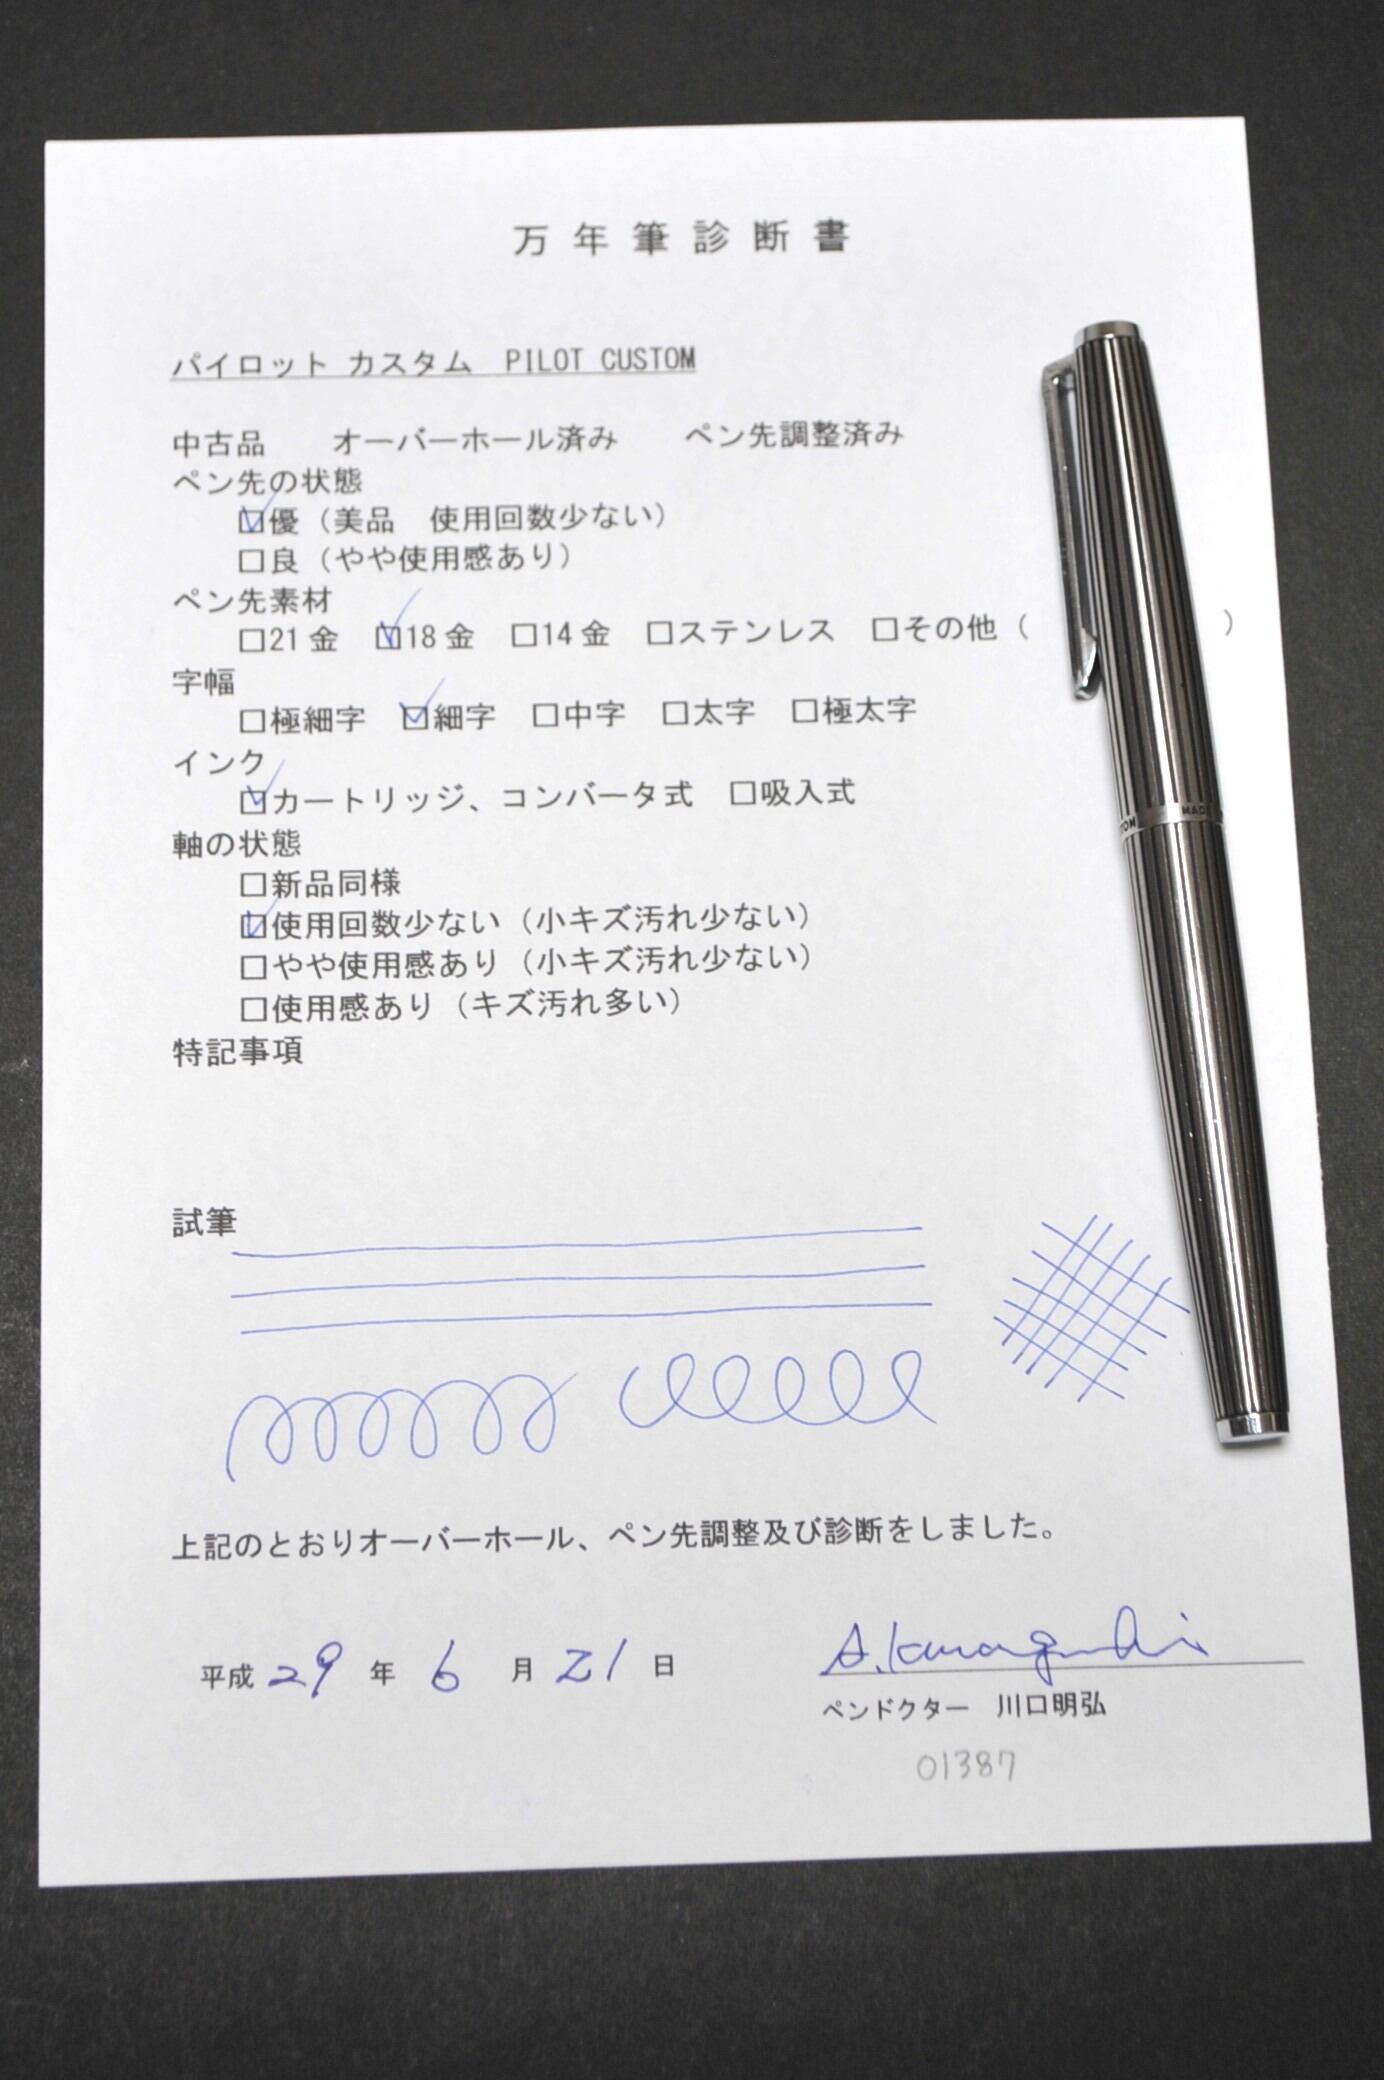 万年筆診断書
パイロット カスタム　PILOT CUSTOM
中古品　　オーバーホール済み　　ペン先調整済み
ペン先の状態
☑優（美品　使用回数少ない）
□良（やや使用感あり）
ペン先素材
□21金　☑18金　□14金　□ステンレス　□その他（　　　　　　）
字幅
□極細字　☑細字　□中字　□太字　□極太字
インク
☑カートリッジ、コンバータ式　□吸入式
軸の状態
□新品同様
☑使用回数少ない（小キズ汚れ少ない）
□やや使用感あり（小キズ汚れ少ない）
□使用感あり（キズ汚れ多い）
特記事項
試筆
上記のとおりオーバーホール、ペン先調整及び診断をしました。
平成 29 年 6 月 21 日
A. Kawaguchi
ペンドクター　川口明弘
01387